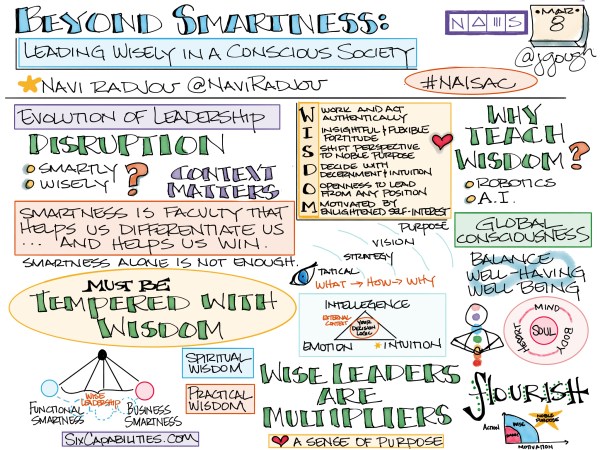 BEYOND SMARTNESS:
LEADING WISELY IN A CONSCIOUS SOCIETY
NAVI RADJOU @NAVIRADJOU
#NAISAC
NAIS
MAR.
8
@jgough
EVOLUTION OF LEADERSHIP
DISRUPTION
SMARTLY
WISELY
?
CONTEXT
MATTERS
SMARTNESS IS FACULTY THAT
HELPS US DIFFERENTIATE US
... AND HELPS US WIN.
SMARTNESS ALONE IS NOT ENOUGH.
MUST BE
TEMPERED WITH
WISDOM
WISE
LEADERSHIP
FUNCTIONAL
SMARTNESS
BUSINESS
SMARTNESS
SIXCAPABILITIES.COM
SPIRITUAL
WISDOM
PRACTICAL
WISDOM
WISDOM
WORK AND ACT
AUTHENTICALLY
INSIGHTFUL & FLEXIBLE
FORTITUDE
SHIFT PERSPECTIVE
TO NOBLE PURPOSE
DECIDE WITH
DECERNMENT & INTUITION
OPENNESS TO LEAD
FROM ANY POSITION
MOTIVATED BY
ENLIGHTENED SELF-INTEREST
PURPOSE
VISION
STRATEGY
TATICAL
WHAT → HOW → WHY
INTELLEGENCE
EXTERNAL
CONTEXT
YOUR
DECISION
LOGIC
EMOTION
INTUITION
WISE LEADERS
ARE
MULTIPLIERS
A SENSE OF PURPOSE
WHY
TEACH
WISDOM?
ROBOTICS
A.I.
GLOBAL
CONSCIOUSNESS
BALANCE
WELL-HAVING
WELL-BEING
MIND
BODY
SOUL
FLOURISH
NOBLE
PURPOSE
ACTION
WISE
MOTIVATION